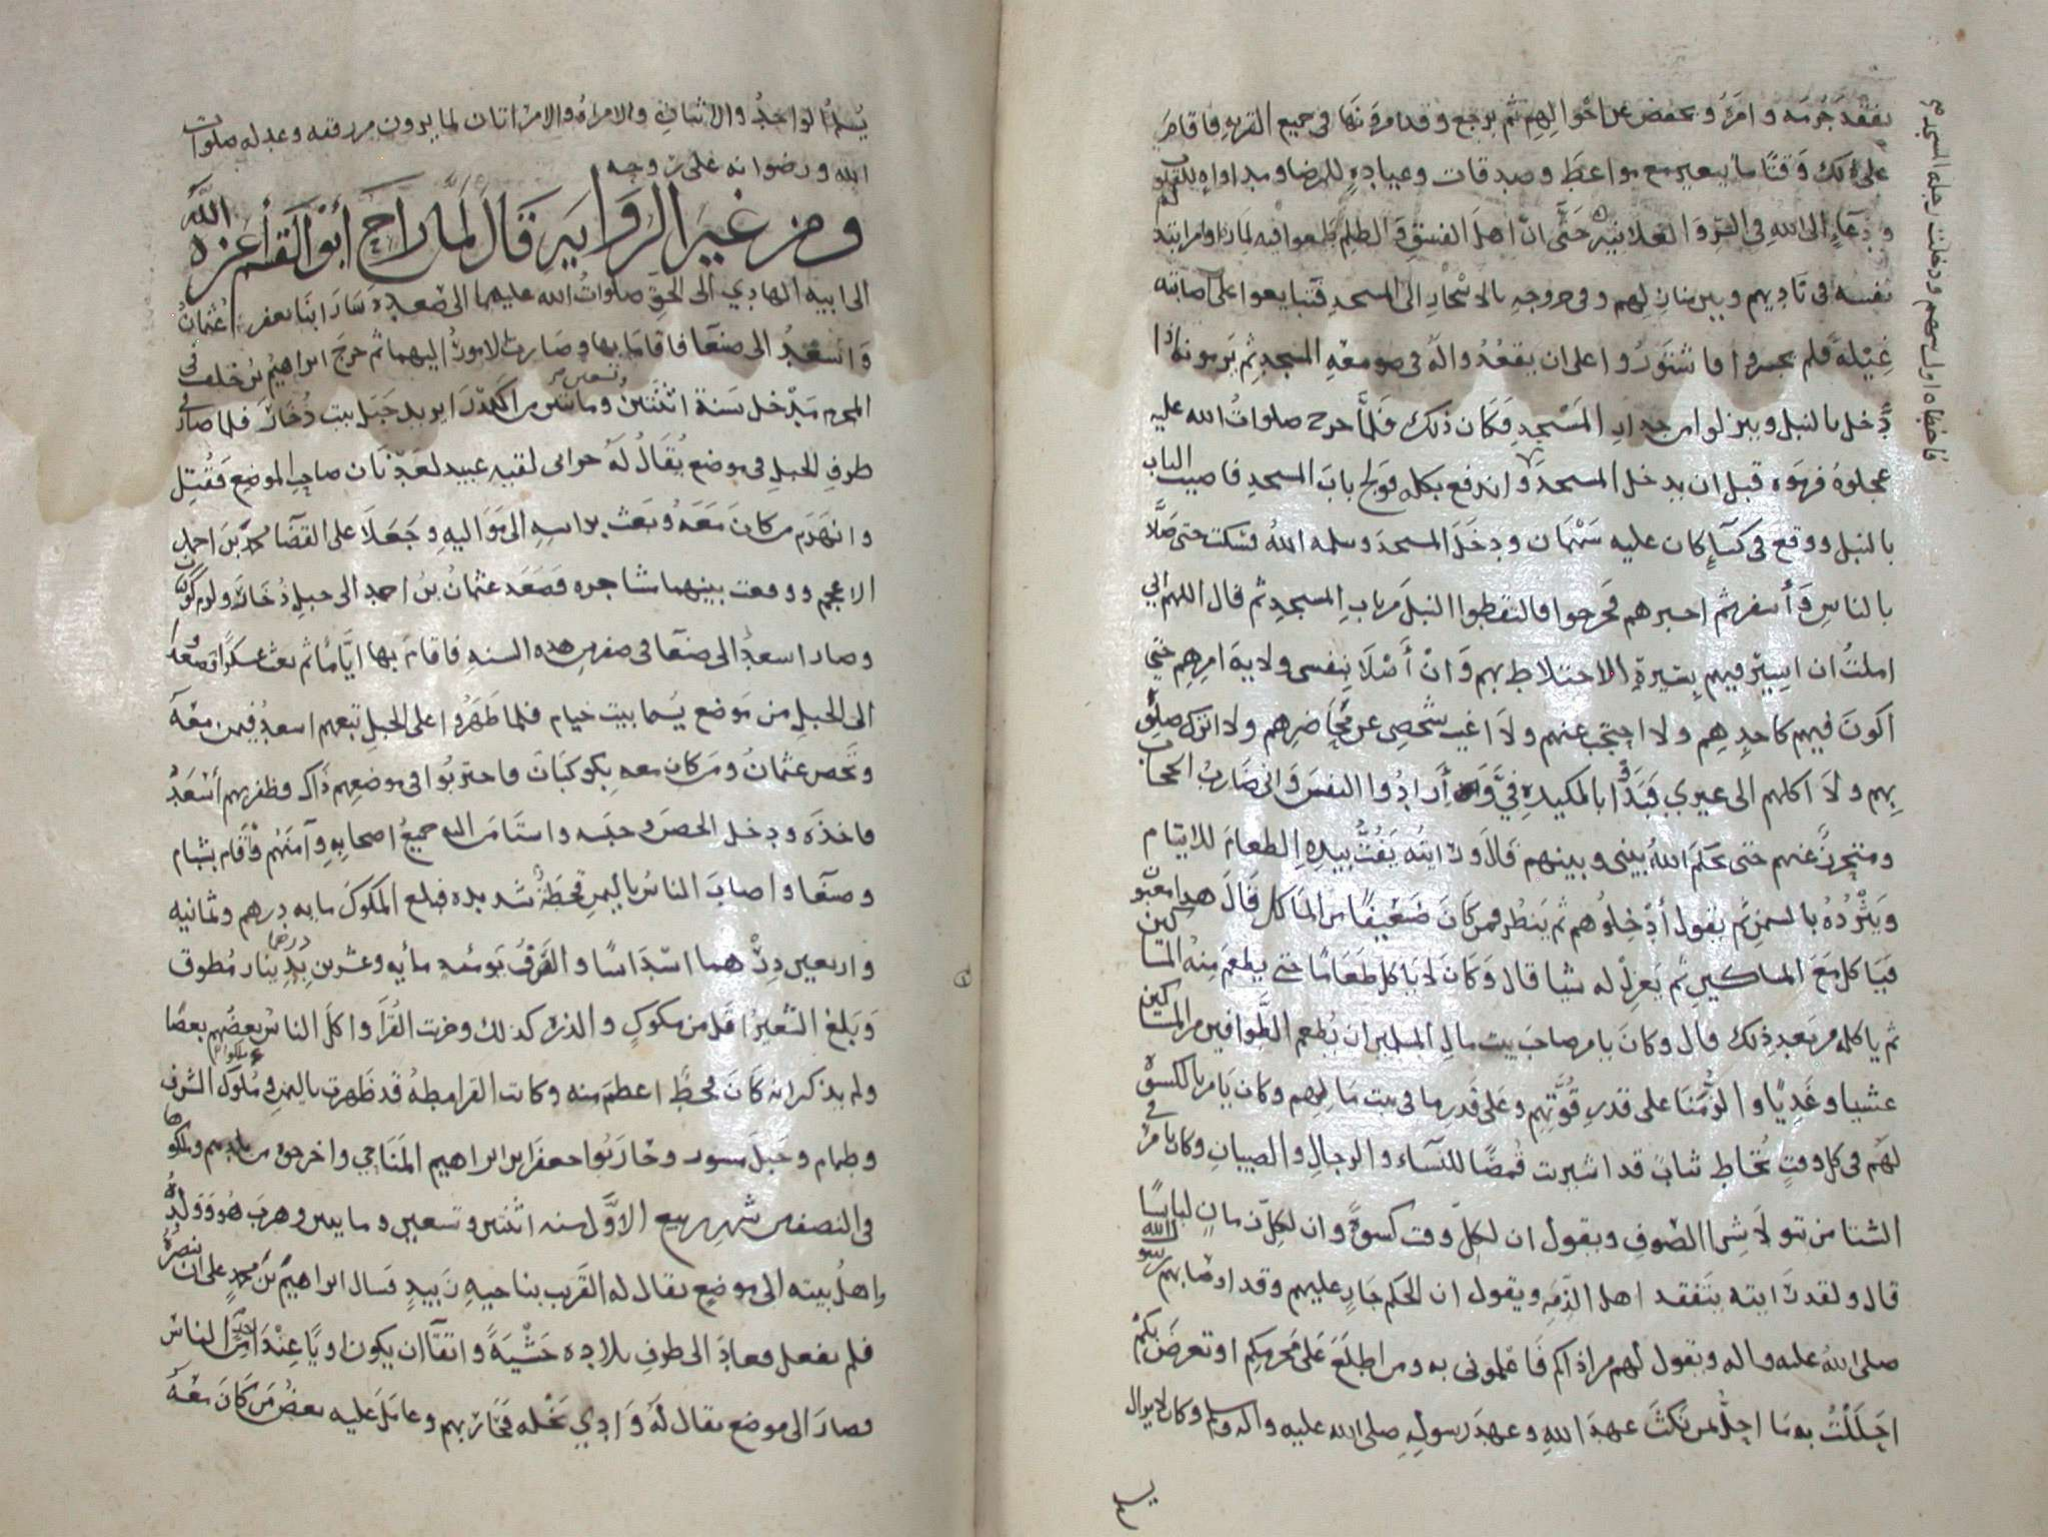 نفقد جرمه وامره ويخفض عن احوالهم ثم يرجع وقد امر نها في جميع القريه فاقام
على ذلك وقتا ما يتغير مع مواعظ وصدقات وعياده للمرضا ومداواه للقلوب
ودعاء الى الله في السر والعلانيه حتى ان اهل الفسق والظلم طمعوا فيه لما راوا من ابتذ
نفسه في ناديهم وبين منازلهم وفي خروجه بالاسحار الى المسجد فتبايعوا على اصابته
غيلة فلم يجسروا فاشتوروا على ان يقعدوا له في صومعه المسجد ثم يرمونه اذا
دخل بالنبل وينزلوا من جدار المسجد فكان ذلك فلما خرج صلوات الله عليه
عجلوه فرموه قبل ان يدخل المسجد واندفع بكله فولج باب المسجد فاصيب الباب
بالنبل ووقع في كساء كان عليه سهمان ودخل المسجد وسلمه الله فسكت حتى صلا
بالناس واسفر ثم اخبرهم فخرجوا فالتقطوا النبل من باب المسجد ثم قال اللهم اني
املت ان اسير فيهم بسيرة الاختلاط بهم وان أصلا بنفسي ولاية امرهم حتى
اكون فيهم كاحدهم ولا احتجب عنهم ولا اغيب شخصي عن محاضرهم ولا اترك صلوة
بهم ولا اكلهم الى غيري فبدوا بالمكيدة في وأرادوا النفس واني ضارب الحجاب
ومتحرز عنهم حتى يحكم الله بيني وبينهم قال ورايته يفت بيده الطعام للايتام
ويثرده بالسمن ثم يقول أدخلوهم ثم ينظر فمن كان ضعيفا من الماكل قال هذا مغبون
فياكل مع المساكين ثم يعزل له شيا قال وكان لا ياكل طعاما حتى يطعم منه المساكين
ثم ياكله من بعد ذلك قال وكان يامر صاحب بيت مال المسلمين ان يطعم الطوافين من المساكين
عشيا وغديا والزمنا على قدر قوتهم وعلى قدر ما في بيت مالهم وكان يامر بالكسوة
لهم في كل وقت تخاط ثياب قد اشتريت قمصا للنساء والرجال والصبيان وكان يامر في
الشتا من تولا شرا الصوف ويقول ان لكل وقت كسوة وان لكل زمان لباسا
قال ولقد رايته يتفقد اهل الذمه ويقول ان الحكم جار عليهم وقد اوصا بهم رسول الله
صلى الله عليه واله ويقول لهم من اذاكم فاعلموني به ومن اطلع على محرمكم او تعرض بكم
احللت به ما احل بمن نكث عهد الله وعهد رسوله صلى الله عليه واله وسلم وكان لا يزال
فاخطاه اول سهم ودخلت رجله المسجد
الواحد والاثنان والامراة والامراتان لما يرون من رفقه وعدله صلوات
الله ورضوانه على روحه
ومن غير الرواية قال لما راح أبو القسم أعزه الله
الى ابيه الهادي الى الحق صلوات الله عليهما الى صعده سار ابنا يعفر عثمان
واسعد الى صنعا فاقاما بها وصارت الامور اليهما ثم خرج ابراهيم بن خلف في
المحرم مدخل سنة اثنتين وتسعين ومائتين من الكدرا يريد جبل بيت ذخار فلما صار في
طرف الجبل في موضع يقال له لقيه عبيد صاحب الموضع فقتل
وانهزم من كان معه وبعث براسه الى مواليه وجعلا على القضا محمد بن احمد
الاعجم ووقعت بينهما مشاجره فصعد عثمان بن احمد الى جبل ذخار ولزم كوكبان
وصار اسعد الى صنعا في صفر من هذه السنه فاقام بها اياما ثم بعث عسكرا فصعدوا
الى الجبل من موضع يسما بيت خيام فلما ظهروا على الجبل تبعهم اسعد فيمن معه
وتحصن عثمان ومن كان معه بكوكبان واحتربوا في موضعهم ذاك وظفر بهم أسعد
فاخذه ودخل الحصن وحبسه واستامن اليه جميع اصحابه وآمنهم وأقام بشبام
وصنعا واصاب الناس باليمن قحطة شديده فبلغ المكوك مايه درهم وثمانيه
واربعين درهما اسداسا والفرق يومئذ مأيه وعشرين درهما بدينار مطوق
وبلغ الشعير اقل من مكوك والذره كذلك وخربت القرا واكل الناس بعضهم بعضا
ولم يذكر انه كان قحط اعظم منه وكانت القرامطه قد ظهرت باليمن وملوك الشرف
وظمام وجبل مسور وحاربوا جعفر ابن ابراهيم المناخي واخرجوه من بلدهم وملكوها
في النصف من شهر ربيع الاول سنه اثنتين وتسعين ومايتين وهرب هو وولده
واهل بيته الى موضع يقال له القرتب بناحيه زبيد فسال ابراهيم بن محمد بن علي ان ينصره
فلم يفعل فعاد الى طرف بلاده خشية واتقا ان يكون اويا عند احد من الناس
وصار الى موضع يقال له وادي نخله فحاربهم وعامل عليه بعض من كان معه